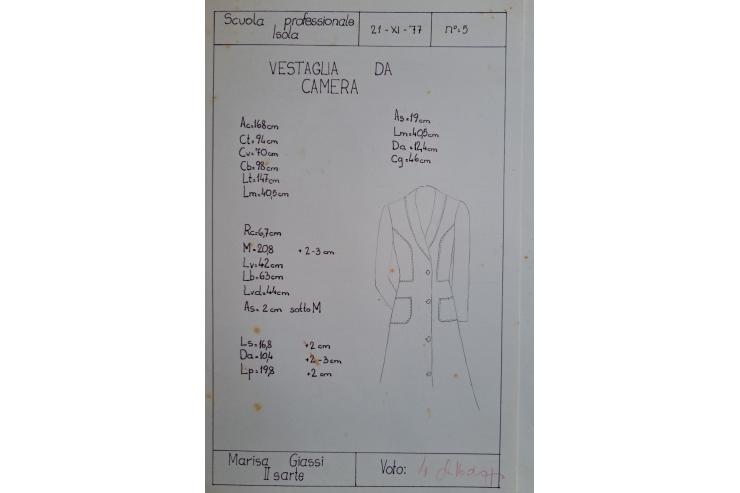 Scuola professionale
Isola
21-XI-77
n°=5
VESTAGLIA DA
CAMERA
Ac=168cm
Ct=94cm
Cv=70cm
Cb=98cm
Lt=147cm
Lm=40,5cm
As=19cm
Lm=40,5cm
Da=12,4cm
Cg=46cm
Rc=6,7cm
M=20,8 +2-3cm
Lv=42cm
Lb=63cm
Lvd=44cm
As=2cm sotto M
Ls=16,8 +2cm
Da=10,4 +2-3cm
Lp=19,8 +2cm
Marisa Giassi
II sarte
Voto: 4